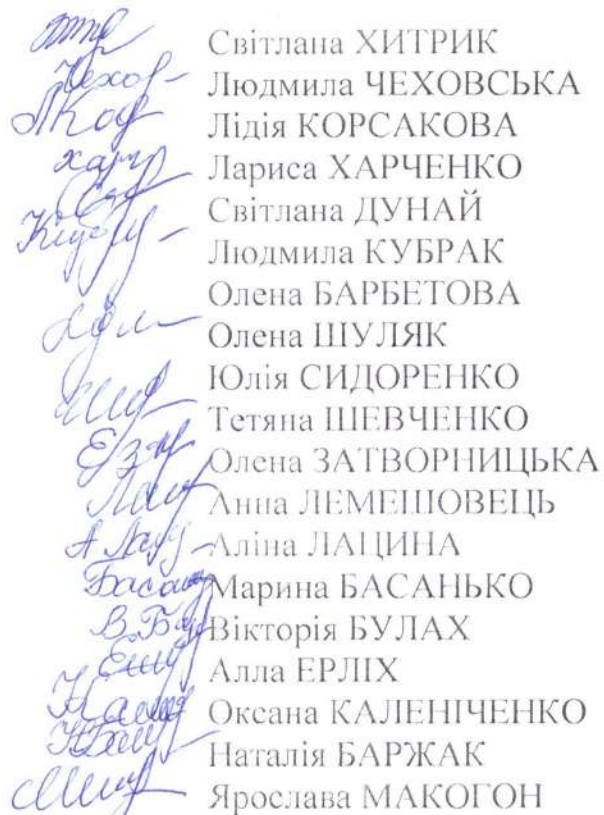 Світлана ХИТРИК
Людмила ЧЕХОВСЬКА
Лідія КОРСАКОВА
Лариса ХАРЧЕНКО
Світлана ДУНАЙ
Людмила КУБРАК
Олена БАРБЕТОВА
Олена ШУЛЯК
Юлія СИДОРЕНКО
Тетяна ШЕВЧЕНКО
Олена ЗАТВОРНИЦЬКА
Анна ЛЕМЕШОВЕЦЬ
Аліна ЛАЦИНА
Марина БАСАНЬКО
Вікторія БУЛАХ
Алла ЕРЛІХ
Оксана КАЛЕНІЧЕНКО
Наталія БАРЖАК
Ярослава МАКОГОН